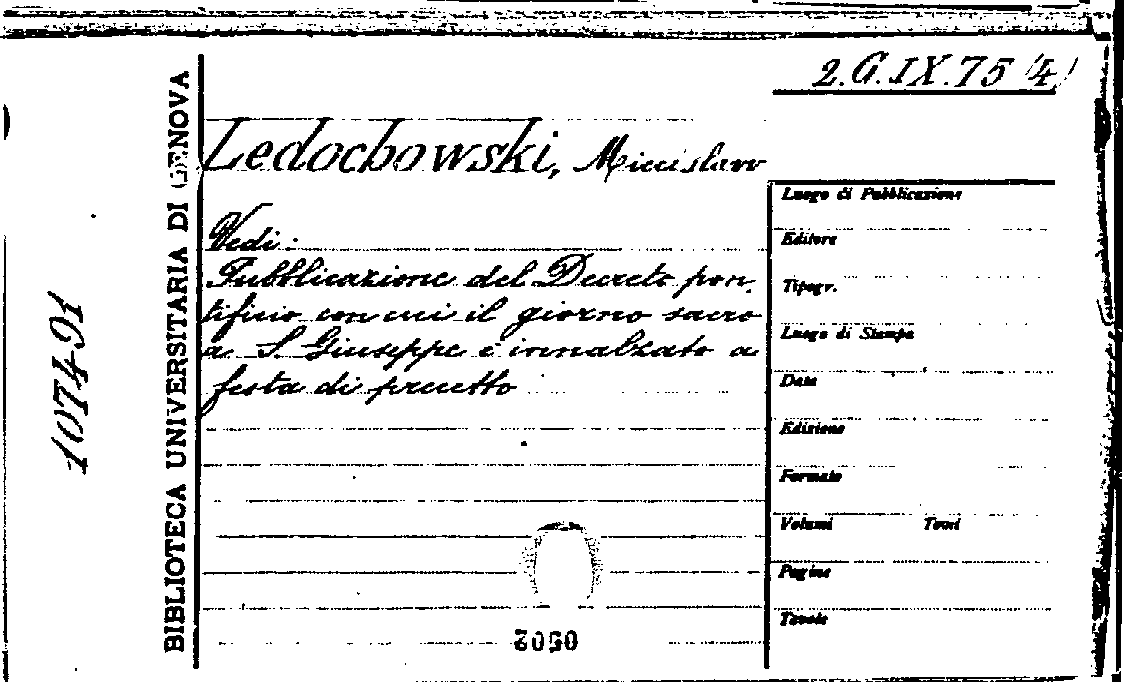 2.G.IX.75 (4)
Ledochowski, Miecislavo
Vedi:
Pubblicazione del Decreto pon
tificio con cui il giorno sacro
a S. Giuseppe è innalzato a
festa di precetto
Luogo di Pubblicazione
Editore
Tipogr.
Luogo di Stampa
Data
Edizione
Formato
Volumi Tomi
Pagine
Tavole
BIBLIOTECA UNIVERSITARIA DI GENOVA
107491